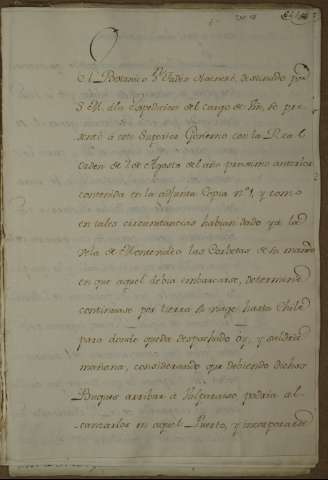 El Botanico Dn Tadeo Haencke, destinado por
S. M. á la Expedicion del cargo de Vm, se pre-
sentó á este Superior Govierno con la Real
orden de 7 de Agosto del año proximo anterior
contenida en la adjunta Copia nº 1, y como
en tales circunstancias habian dado ya la
Vela de Montevideo las Corbetas de su mando
en que aquel debia embarcarse, determiné
continuase por tierra su viage hasta Chile
para donde queda despachado oy, y saldrá
mañana, considerando que debiendo dichos
Buques arribar á Valparaiso podria al-
canzarlos en aquel Puerto, y incorporarse